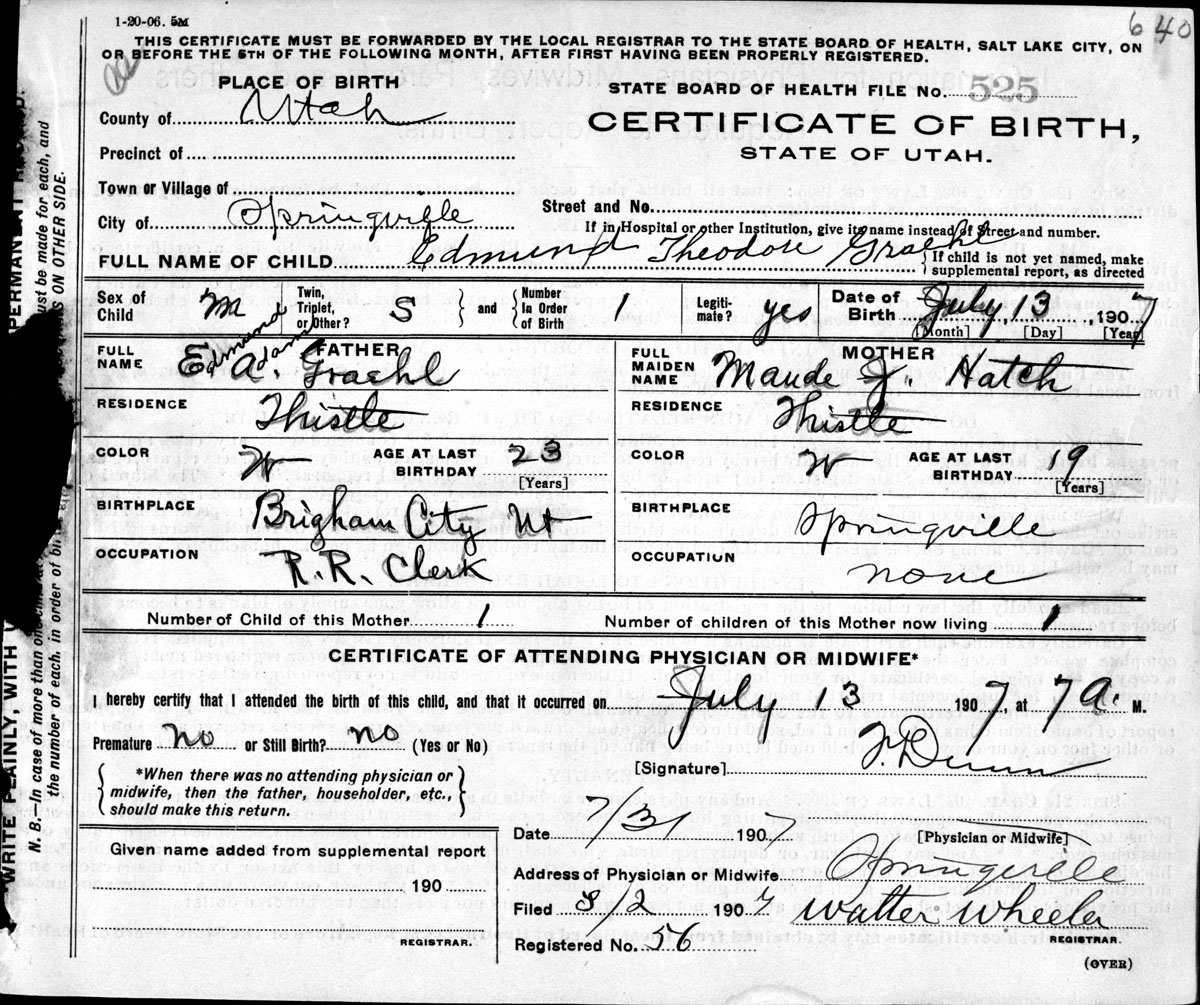 1-20-06. 5M
640
THIS CERTIFICATE MUST BE FORWARDED BY THE LOCAL REGISTRAR TO THE STATE BOARD OF HEALTH, SALT LAKE CITY, ON
OR BEFORE THE 5TH OF THE FOLLOWING MONTH, AFTER FIRST HAVING BEEN PROPERLY REGISTERED.
PLACE OF BIRTH
STATE BOARD OF HEALTH FILE No. 525
County of Utah
CERTIFICATE OF BIRTH,
STATE OF UTAH.
Precinct of
Town or Village of
City of Springville
Street and No.
If in Hospital or other Institution, give its name instead of Street and number.
FULL NAME OF CHILD Edmund Theodore Graehl
If child is not yet named, make
supplemental report, as directed
Sex of Child M Twin, Triplet, or Other? S and Number In Order of Birth 1 Legiti-mate? yes Date of Birth July 13, 1907
[Month] [Day] [Year]
FULL NAME FATHER Edmund Adam A. Graehl
FULL MAIDEN NAME MOTHER Maude J. Hatch
RESIDENCE Thistle
RESIDENCE Thistle
COLOR W AGE AT LAST BIRTHDAY 23 [Years]
COLOR W AGE AT LAST BIRTHDAY 19 [Years]
BIRTHPLACE Brigham City Ut
BIRTHPLACE Springville
OCCUPATION R.R. Clerk
OCCUPATION none
Number of Child of this Mother 1 Number of children of this Mother now living 1
CERTIFICATE OF ATTENDING PHYSICIAN OR MIDWIFE*
I hereby certify that I attended the birth of this child, and that it occurred on July 13 1907, at 7 A. M.
Premature no or Still Birth? no (Yes or No)
[Signature] Dunn
*When there was no attending physician or
midwife, then the father, householder, etc.,
should make this return.
Date 7/31 1907
[Physician or Midwife]
Given name added from supplemental report
190
REGISTRAR.
Address of Physician or Midwife Springville
Filed 8/2 1907 Walter Wheeler
REGISTRAR.
Registered No. 56
(OVER)
WRITE PLAINLY, WITH
PERMANENT
N. B.—In case of more than one
must be made for each, and
the number of each, in order of
ON OTHER SIDE.